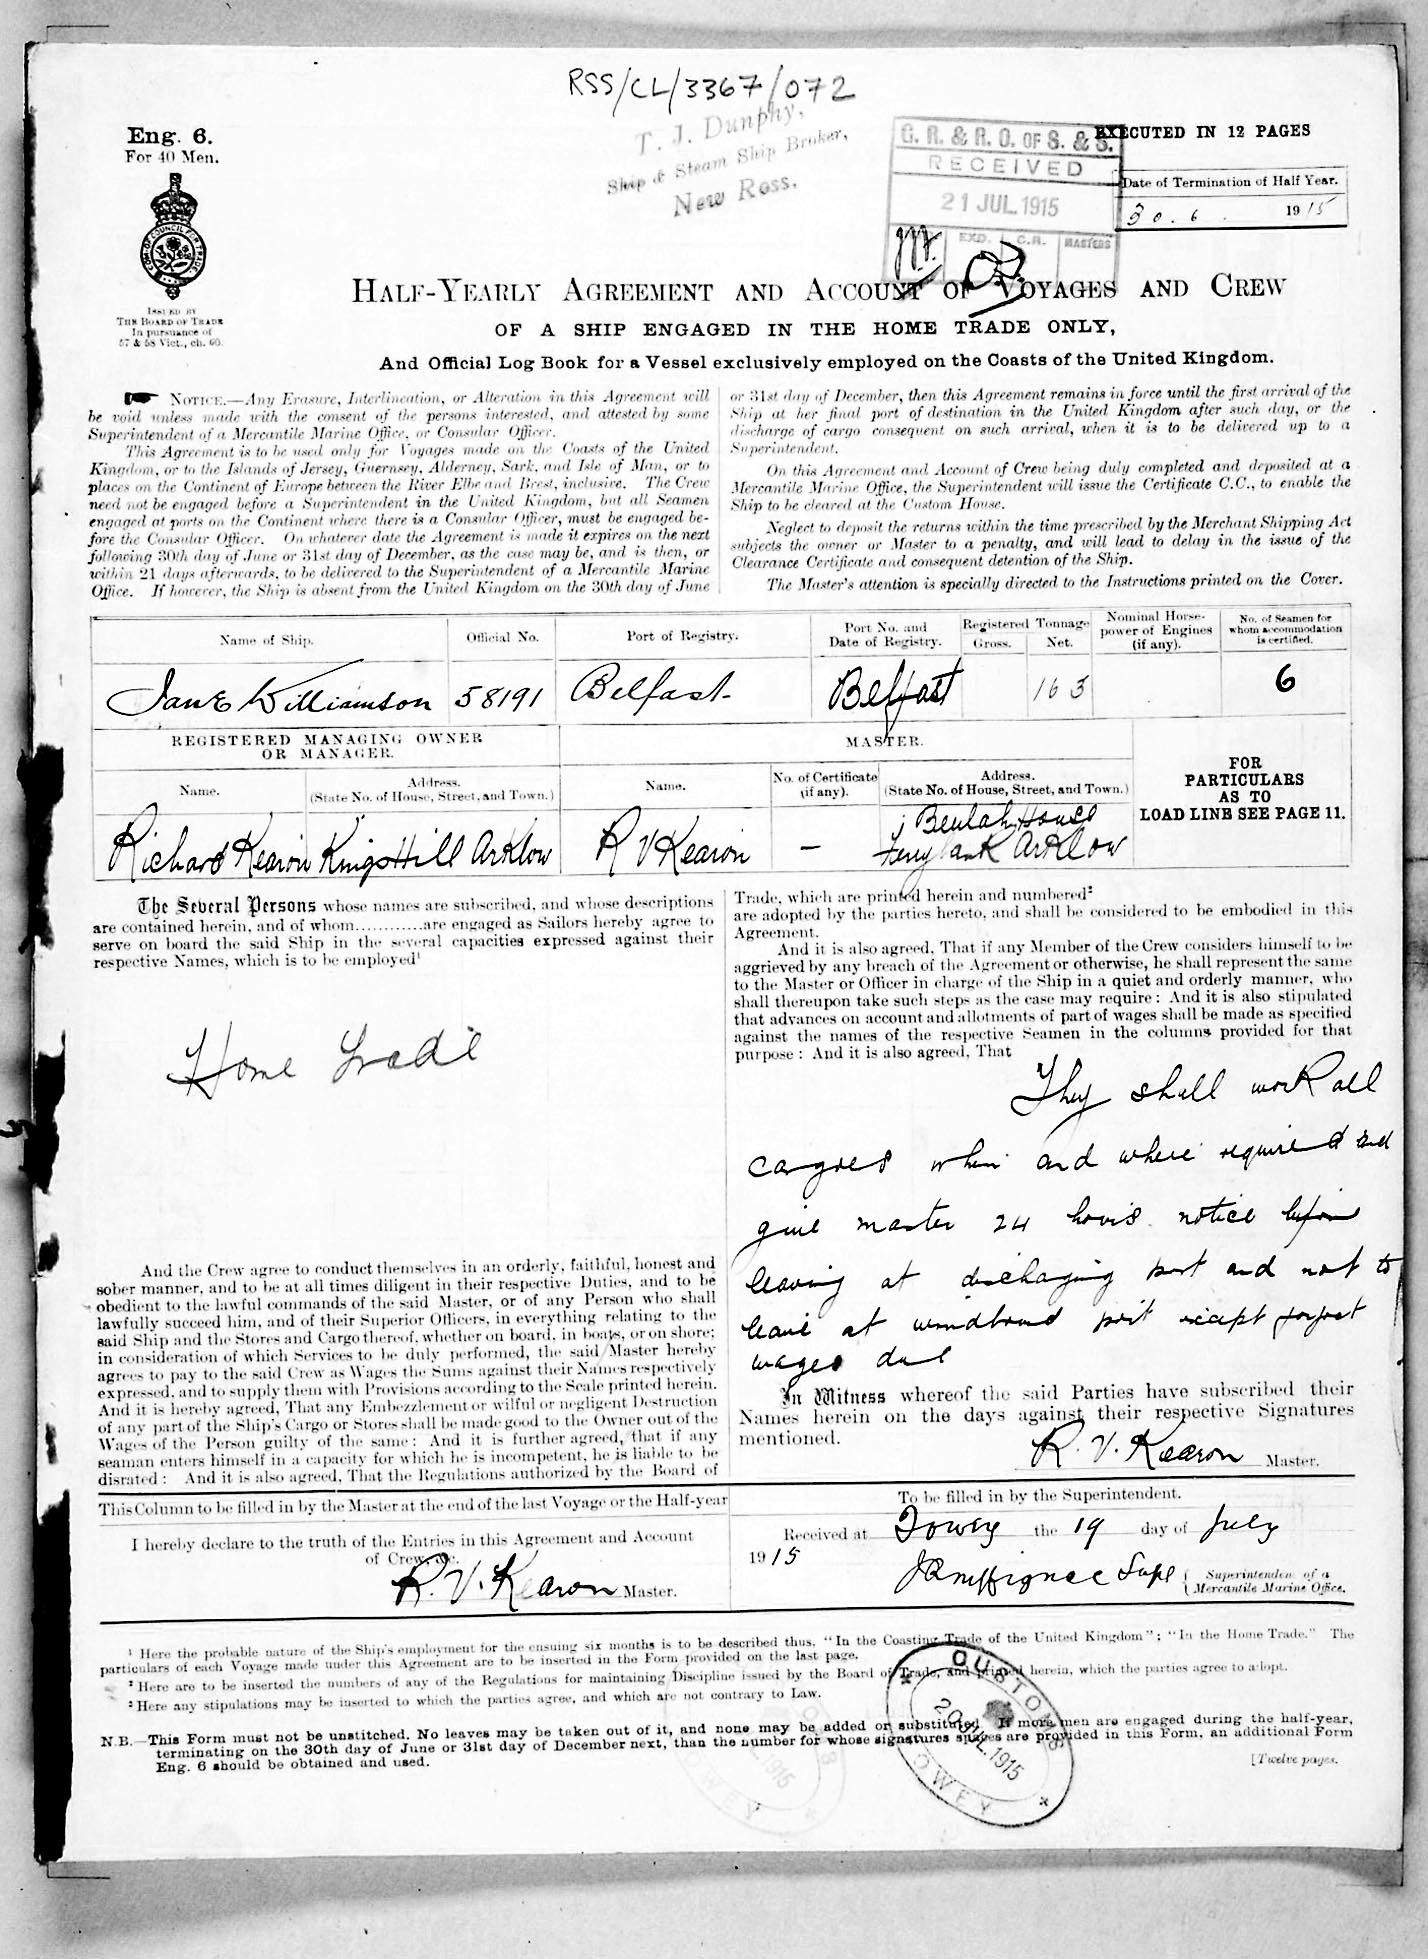 RSS/CL/3367/072
T. J. Dunphy,
Ship & Steam Ship Broker,
New Ross.
Eng. 6.
For 40 Men.
COM. OF COUNCIL FOR TRADE
ISSUED BY
THE BOARD OF TRADE
In pursuance of
57 & 58 Vict., ch. 60.
G. R. & R. O. OF S. & S.
RECEIVED
21 JUL. 1915
EXD. C.R. MASTERS
EXECUTED IN 12 PAGES
Date of Termination of Half Year.
30.6. 1915
HALF-YEARLY AGREEMENT AND ACCOUNT OF VOYAGES AND CREW
OF A SHIP ENGAGED IN THE HOME TRADE ONLY,
And Official Log Book for a Vessel exclusively employed on the Coasts of the United Kingdom.
NOTICE.—Any Erasure, Interlineation, or Alteration in this Agreement will
be void unless made with the consent of the persons interested, and attested by some
Superintendent of a Mercantile Marine Office, or Consular Officer.
This Agreement is to be used only for Voyages made on the Coasts of the United
Kingdom, or to the Islands of Jersey, Guernsey, Alderney, Sark, and Isle of Man, or to
places on the Continent of Europe between the River Elbe and Brest, inclusive. The Crew
need not be engaged before a Superintendent in the United Kingdom, but all Seamen
engaged at ports on the Continent where there is a Consular Officer, must be engaged be-
fore the Consular Officer. On whatever date the Agreement is made it expires on the next
following 30th day of June or 31st day of December, as the case may be, and is then, or
within 21 days afterwards, to be delivered to the Superintendent of a Mercantile Marine
Office. If however, the Ship is absent from the United Kingdom on the 30th day of June
or 31st day of December, then this Agreement remains in force until the first arrival of the
Ship at her final port of destination in the United Kingdom after such day, or the
discharge of cargo consequent on such arrival, when it is to be delivered up to a
Superintendent.
On this Agreement and Account of Crew being duly completed and deposited at a
Mercantile Marine Office, the Superintendent will issue the Certificate C.C., to enable the
Ship to be cleared at the Custom House.
Neglect to deposit the returns within the time prescribed by the Merchant Shipping Act
subjects the owner or Master to a penalty, and will lead to delay in the issue of the
Clearance Certificate and consequent detention of the Ship.
The Master's attention is specially directed to the Instructions printed on the Cover.
Name of Ship. Official No. Port of Registry. Port No. and Date of Registry. Registered Tonnage Gross. Net. Nominal Horse-power of Engines (if any). No. of Seamen for whom accommodation is certified.
Jane Williamson 58191 Belfast Belfast 163 6
REGISTERED MANAGING OWNER OR MANAGER. MASTER.
Name. Address. (State No. of House, Street, and Town.) Name. No. of Certificate (if any). Address. (State No. of House, Street, and Town.)
FOR
PARTICULARS
AS TO
LOAD LINE SEE PAGE 11.
Richard Kearon Kings Hill Arklow R V Kearon — Beulah House
Ferrybank Arklow
The Several Persons whose names are subscribed, and whose descriptions
are contained herein, and of whom............are engaged as Sailors hereby agree to
serve on board the said Ship in the several capacities expressed against their
respective Names, which is to be employed¹
Home Trade
And the Crew agree to conduct themselves in an orderly, faithful, honest and
sober manner, and to be at all times diligent in their respective Duties, and to be
obedient to the lawful commands of the said Master, or of any Person who shall
lawfully succeed him, and of their Superior Officers, in everything relating to the
said Ship and the Stores and Cargo thereof, whether on board, in boats, or on shore;
in consideration of which Services to be duly performed, the said Master hereby
agrees to pay to the said Crew as Wages the Sums against their Names respectively
expressed, and to supply them with Provisions according to the Scale printed herein.
And it is hereby agreed, That any Embezzlement or wilful or negligent Destruction
of any part of the Ship's Cargo or Stores shall be made good to the Owner out of the
Wages of the Person guilty of the same: And it is further agreed, that if any
seaman enters himself in a capacity for which he is incompetent, he is liable to be
disrated: And it is also agreed, That the Regulations authorized by the Board of
Trade, which are printed herein and numbered²
are adopted by the parties hereto, and shall be considered to be embodied in this
Agreement.
And it is also agreed, That if any Member of the Crew considers himself to be
aggrieved by any breach of the Agreement or otherwise, he shall represent the same
to the Master or Officer in charge of the Ship in a quiet and orderly manner, who
shall thereupon take such steps as the case may require: And it is also stipulated
that advances on account and allotments of part of wages shall be made as specified
against the names of the respective Seamen in the columns provided for that
purpose: And it is also agreed, That
They shall work all
cargoes when and where required and
give master 24 hours notice before
leaving at discharging port and not to
leave at windbound port except forfeit
wages due
In Witness whereof the said Parties have subscribed their
Names herein on the days against their respective Signatures
mentioned.
R. V. Kearon Master.
This Column to be filled in by the Master at the end of the last Voyage or the Half-year
I hereby declare to the truth of the Entries in this Agreement and Account
of Crew, &c.
R. V. Kearon Master.
To be filled in by the Superintendent.
Received at Fowey the 19 day of July
1915
Supt Superintendent of a
Mercantile Marine Office.
¹ Here the probable nature of the Ship's employment for the ensuing six months is to be described thus, "In the Coasting Trade of the United Kingdom"; "In the Home Trade." The
particulars of each Voyage made under this Agreement are to be inserted in the Form provided on the last page.
² Here are to be inserted the numbers of any of the Regulations for maintaining Discipline issued by the Board of Trade, and printed herein, which the parties agree to adopt.
³ Here any stipulations may be inserted to which the parties agree, and which are not contrary to Law.
N.B.—This Form must not be unstitched. No leaves may be taken out of it, and none may be added or substituted. If more men are engaged during the half-year,
terminating on the 30th day of June or 31st day of December next, than the number for whose signatures spaces are provided in this Form, an additional Form
Eng. 6 should be obtained and used.
[Twelve pages.
CUSTOMS
20 JUL. 1915
FOWEY